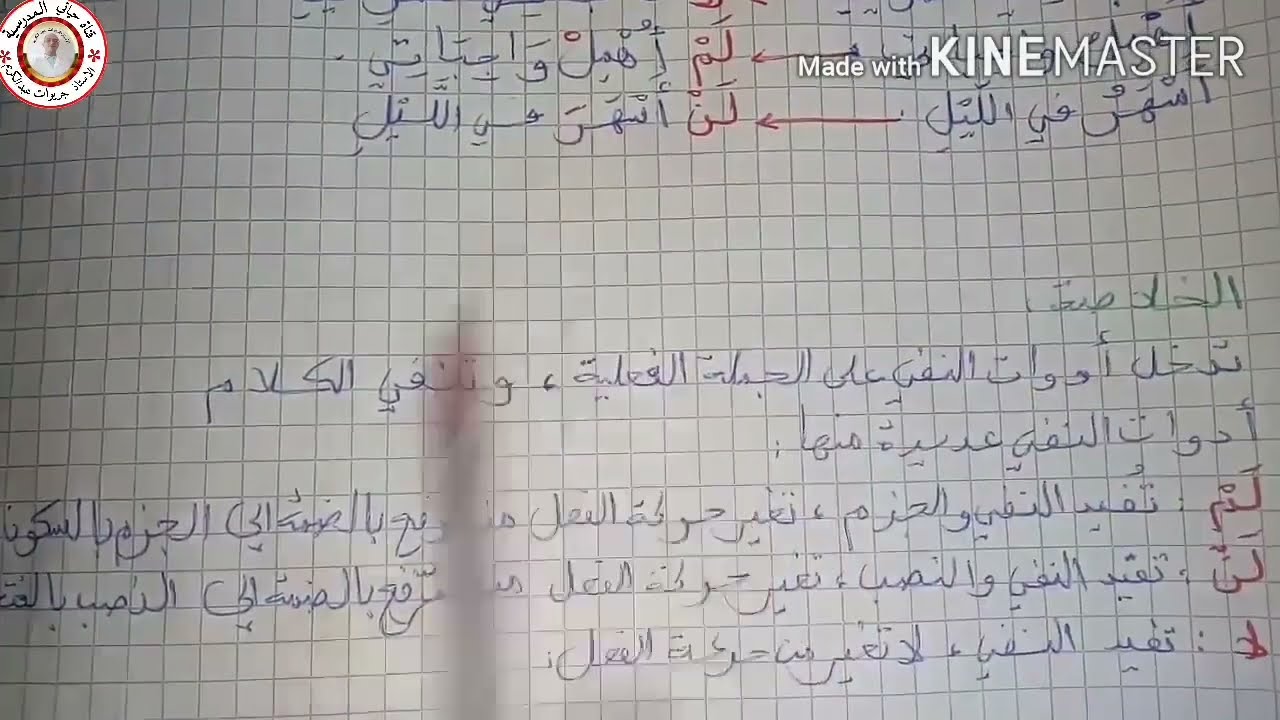 قناة حياتي المدرسية
الأستاذ جريرات عبد الكريم
Made with KINEMASTER
لَمْ أُهْمِلْ وَاجِبَاتِي
أَسْهَرُ في اللَّيْلِ ← لَنْ أَسْهَرَ في اللَّيْلِ
الخلاصة
تدخل أدوات النفي على الجملة الفعلية، وتنفي الكلام
أدوات النفي عديدة منها:
لَمْ: تُفيد النفي والجزم، تغير حركة الفعل من رفع بالضمة إلى الجزم بالسكون
لَنْ: تفيد النفي والنصب، تغير حركة الفعل من رفع بالضمة إلى النصب بالفت
لا: تفيد النفي، لا تغير من حركة الفعل.